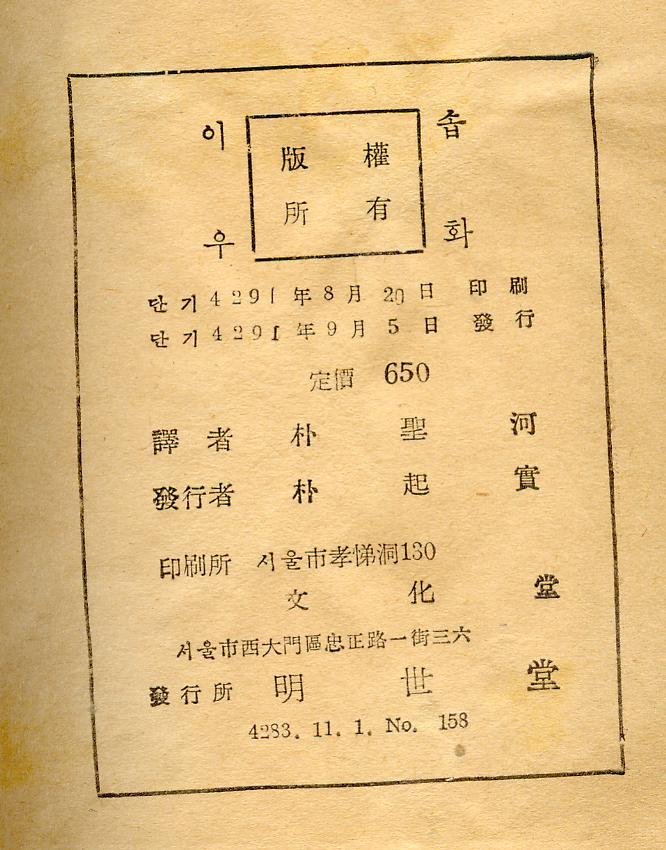 이 솝
版 權
所 有
우 화
단 기 4291 年 8 月 20 日 印 刷
단 기 4291 年 9 月 5 日 發 行
定價 650
譯 者 朴 聖 河
發行者 朴 起 實
印刷所 서울市孝悌洞130
文 化 堂
서울市西大門區忠正路一街三六
發 行 所 明 世 堂
4283. 11. 1. No. 158